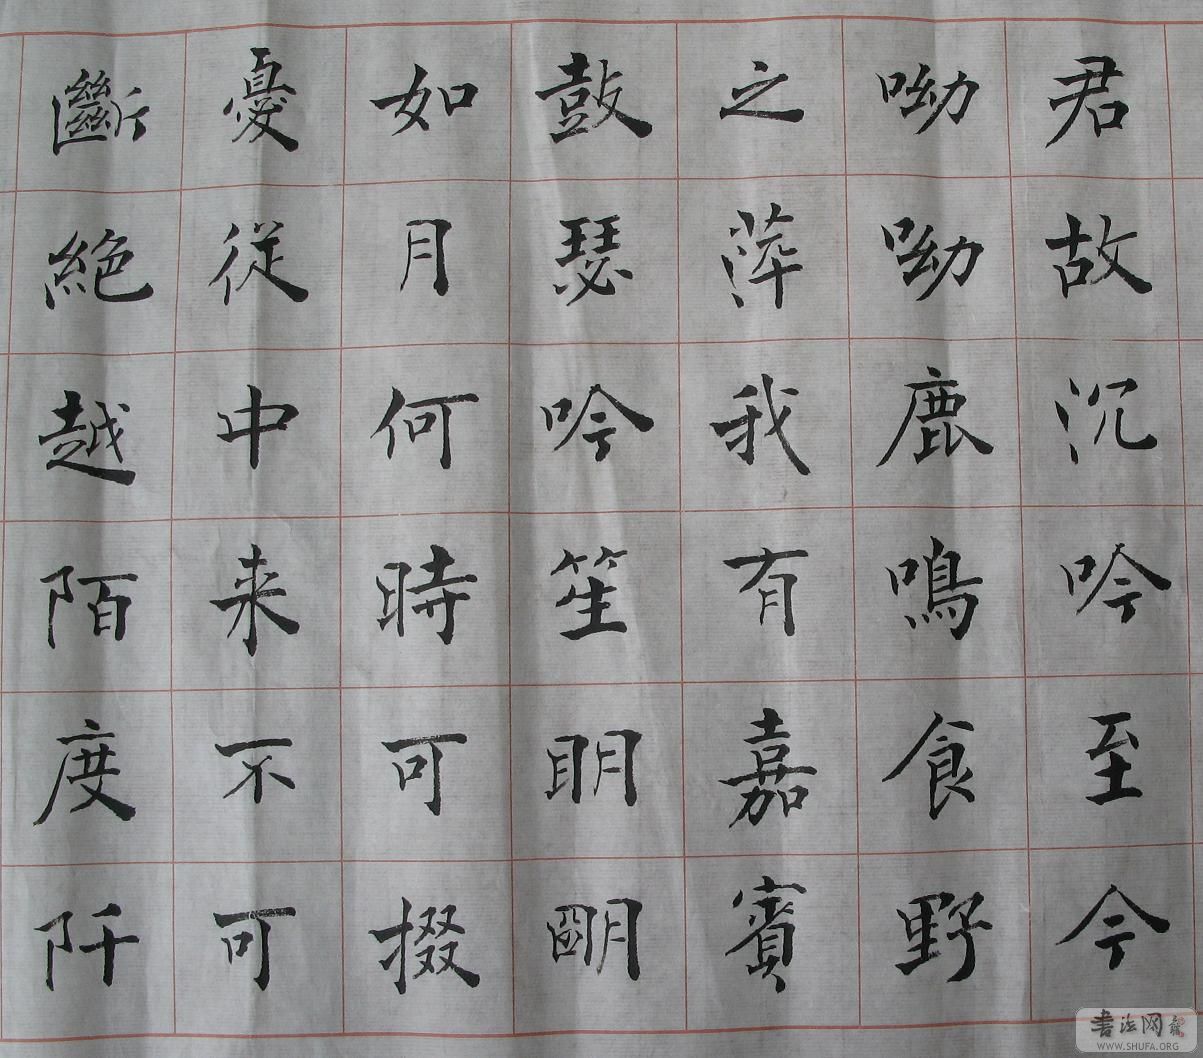 君故沉吟至今
呦呦鹿鳴食野
之萍我有嘉賓
鼓瑟吟笙眀朙
如月何時可掇
憂從中来不可
斷絶越陌度阡
書法网
WWW.SHUFA.ORG